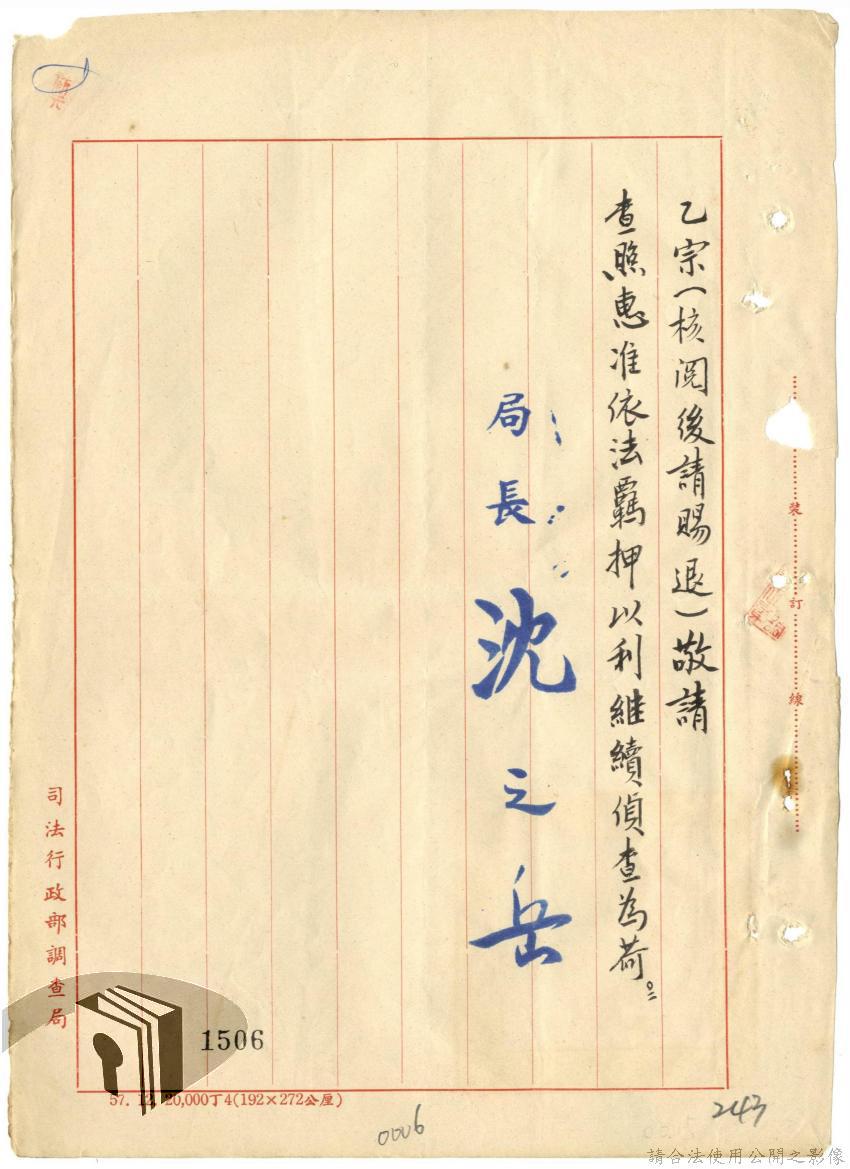 乙宗(核閱後請賜退)敬請
查照惠准依法羈押以利繼續偵查為荷。
局長 沈之岳
裝訂線
司法行政部調查局
1506
57. 12. 20,000丁4(192×272公厘)
0006
243
請合法使用公開之影像